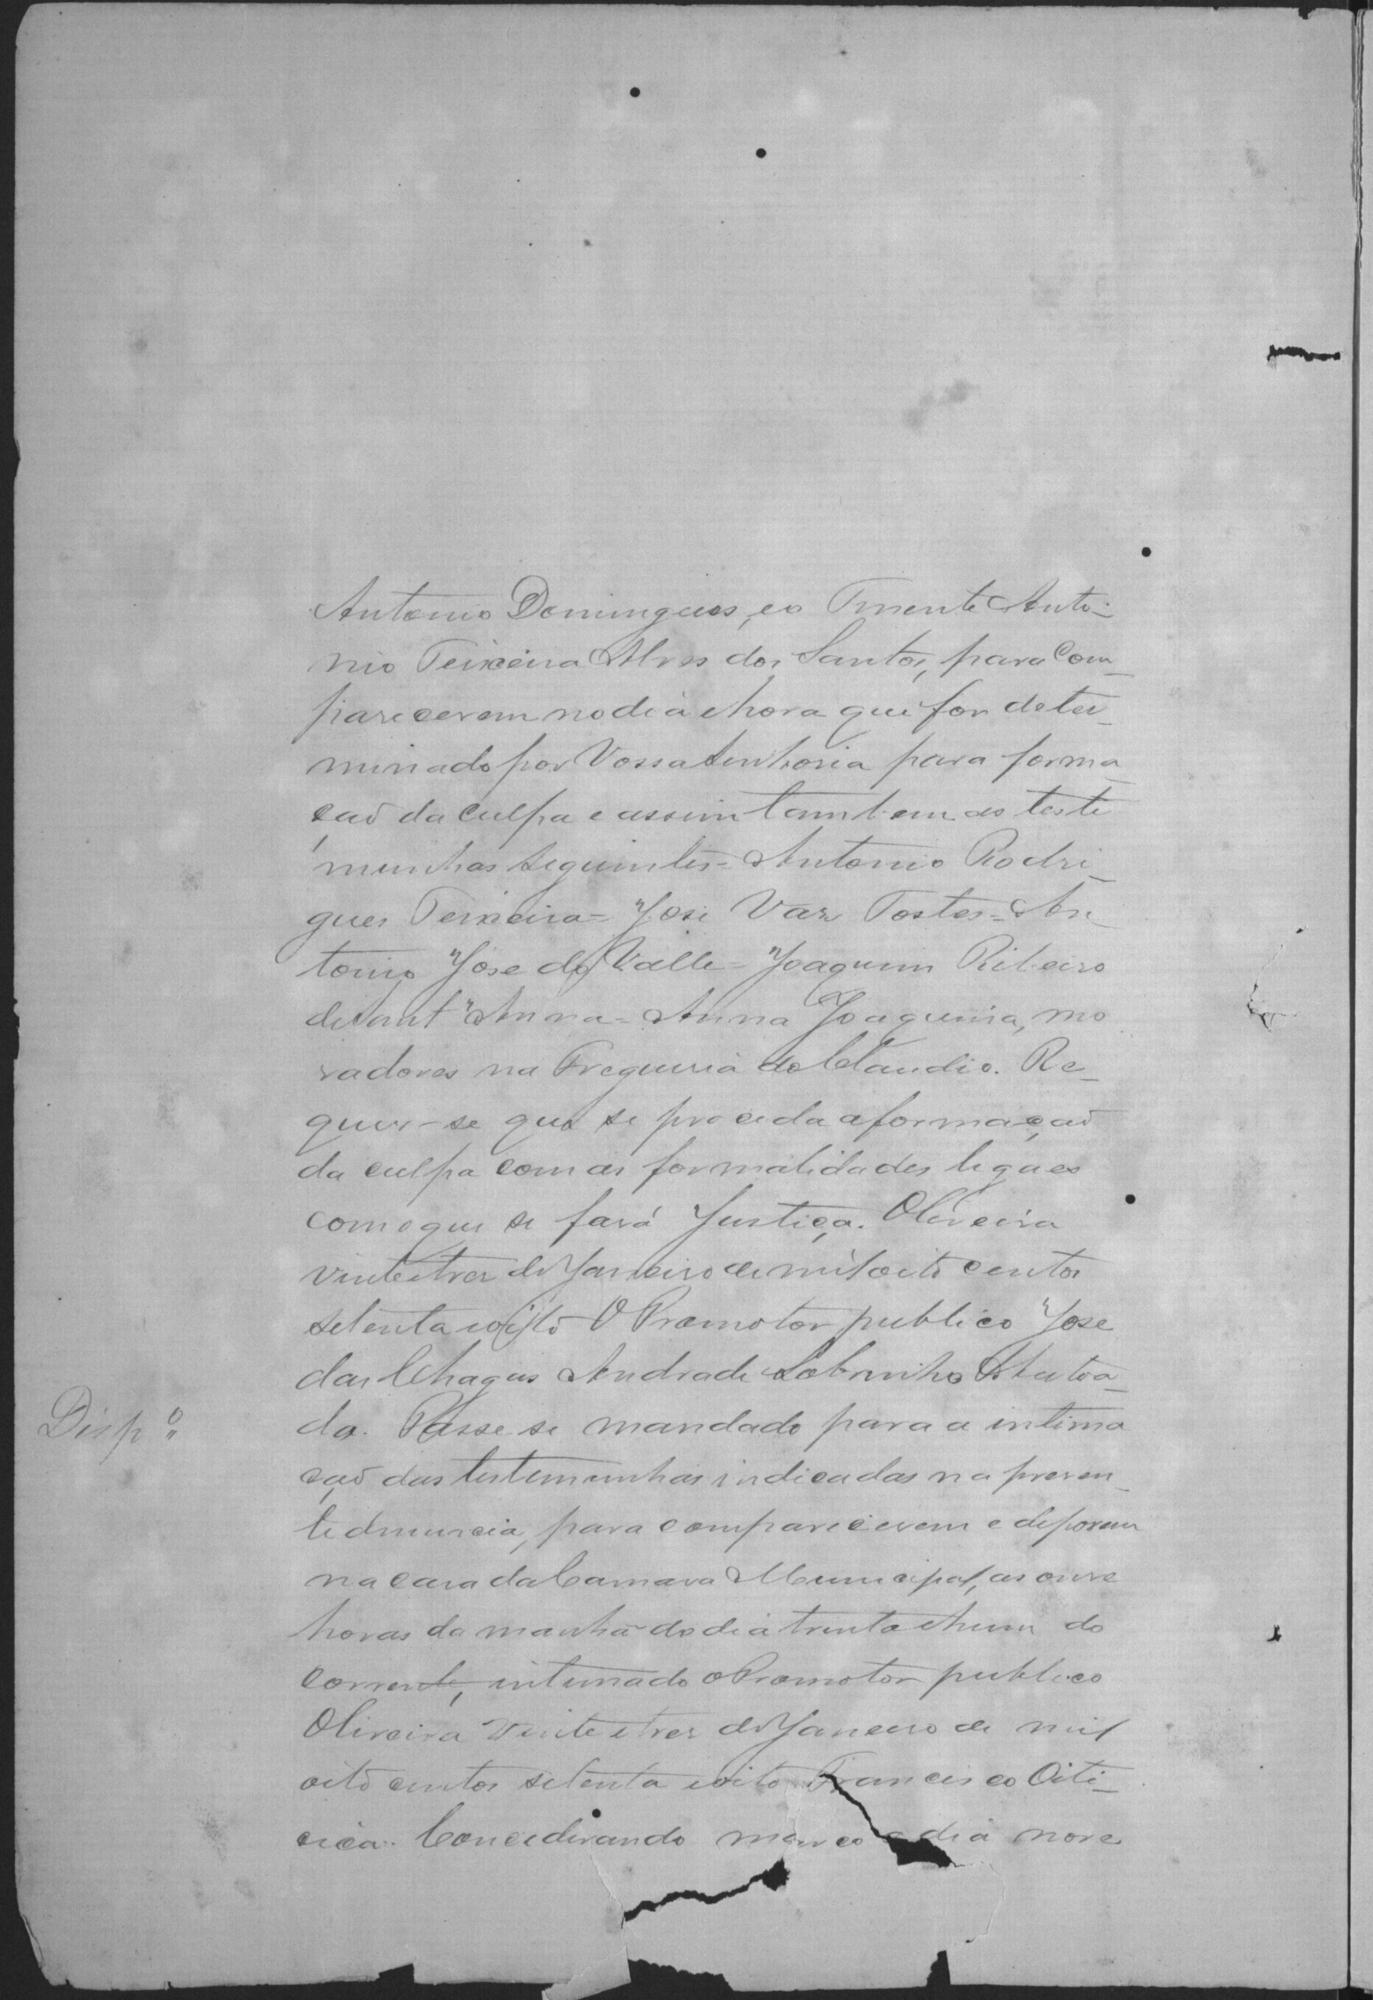 Antonio Domingues, eo Tenente Anto-
nio Teixeira Alves dos Santos, para Com-
parecerem no dia e hora que for deter-
minado por Vossa Senhoria para forma-
çaõ da culpa e assim tambem as teste
munhas seguintes = Antonio Rodri-
gues Teixeira = José Vaz Tostes = An
tonio José do Valle = Joaquim Ribeiro
de Sant'Anna = Anna Joaquina, mo
radores na Freguesia do Claudio. Re-
quer-se que se proceda a formaçaõ
da culpa com as formalidades legaes
com o que se fará Justiça. Oliveira
vinte e tres de Janeiro de mil oito centos
setenta e oito O Promotor publico José
das Chagas Andrade Sobrinho Autoa-
da. Passe se mandado para a intima
çaõ das testemunhas indicadas na presen-
te denuncia, para comparecerem e deporem
na casa da Camara Municipal, as onze
horas da manhã do dia trinta e hum do
corrente, intimado o Promotor publico
Oliveira vinte e tres de Janeiro de mil
oito centos setenta e oito Francisco Oiti-
cica. Concedirando marco o dia nove
Disp.º